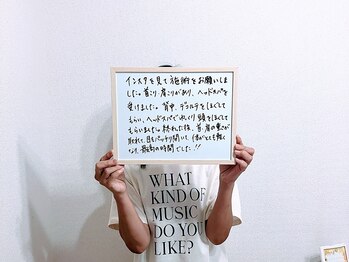 インスタを見て施術をお願いしま
した。首こり・肩こりがあり、ヘッドスパを
受けました。背中、デコルテをほぐして
もらい、ヘッドスパでゆっくり頭をほぐして
もらいました。終わった後、首・肩の重さが
取れて、目もパッチリ開いて、体がとても軽く
なり、最高の時間でした!!
WHAT
KIND OF
MUSIC
DO YOU
LIKE?